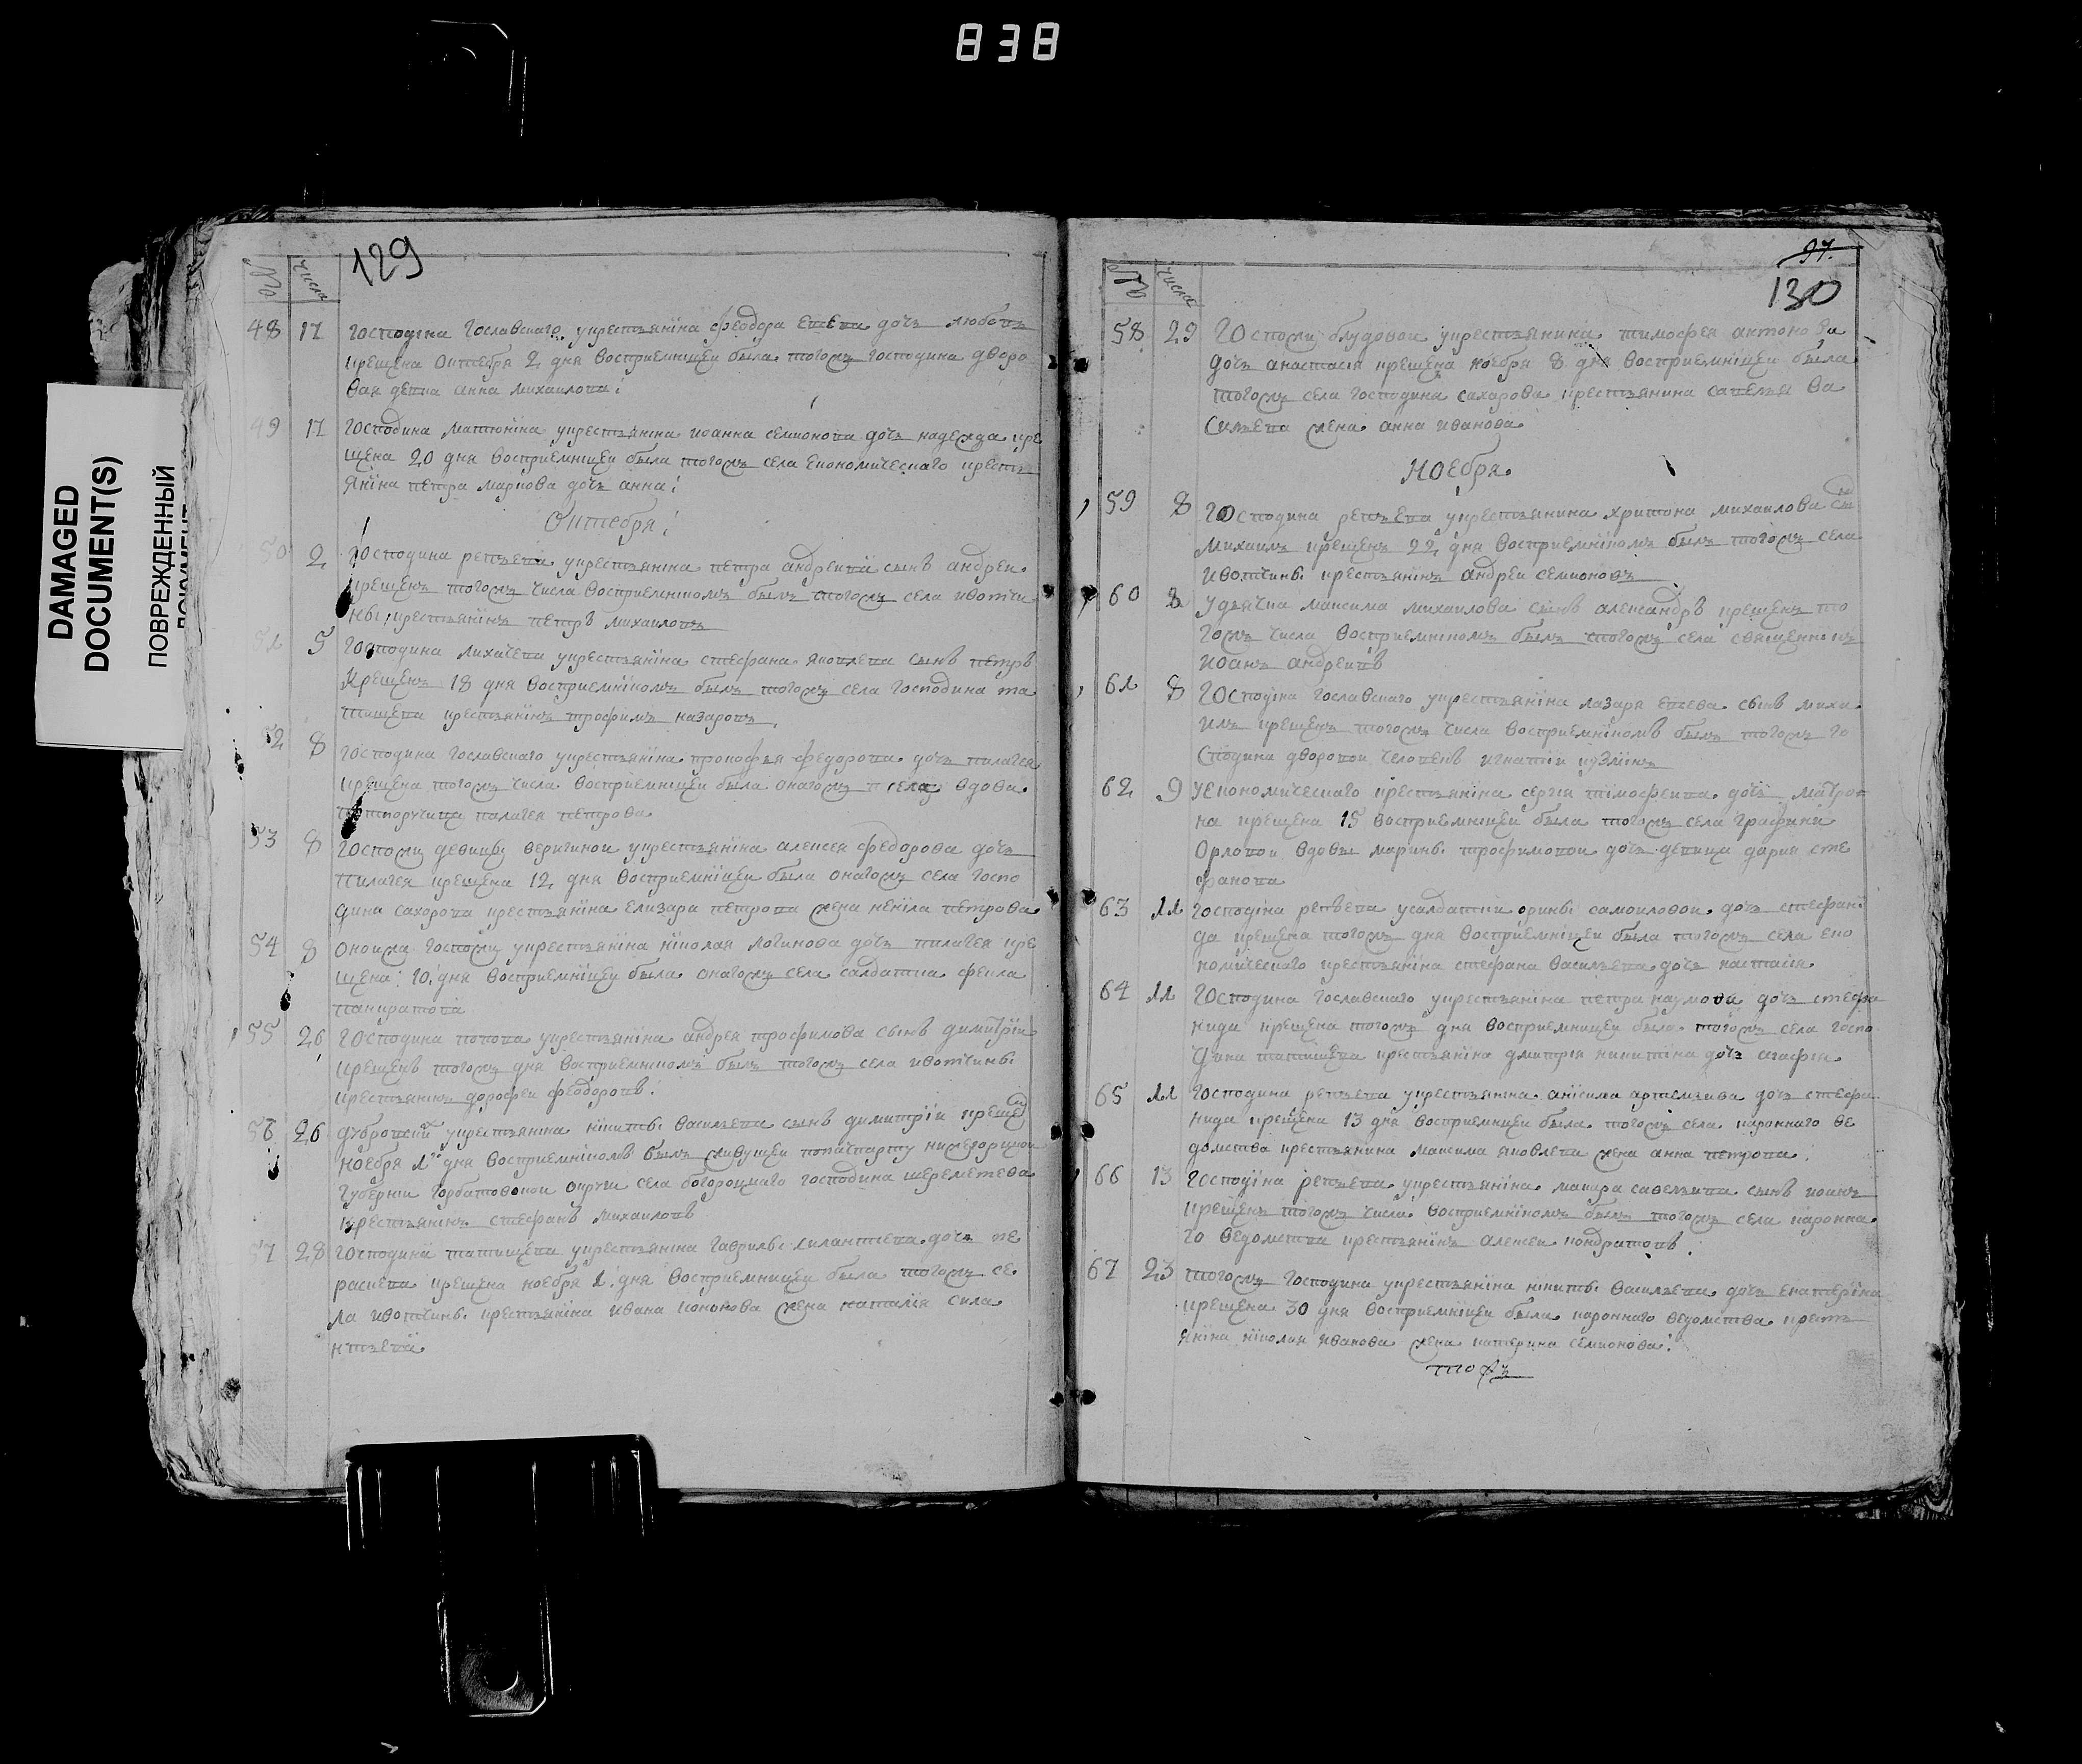 838
DAMAGED
DOCUMENT(S)
ПОВРЕЖДЕННЫЙ
129
№ числа
48 17 Господина Гославскаго укрестьянина феодора Евсева дочь любовь
крещена октебря 2 дня восприемницеи была тогожъ господина дворо
вая девка анна михаилова
49 17 Господина Матюнина укрестьянина иоанна семионова дочь надежда кре
щена 20 дня восприемницеи была тогожъ села економическаго кресть
янина петра маркова дочь анна
Октебря
50 2 Господина репьева укрестьянина петра андреива сынъ андреи
крещенъ тогожъ числа восприемникомъ былъ тогожъ села ивотчи
ны крестьянинъ петръ михаиловъ
51 5 Господина лихачева укрестьянина стефана яковлева сынъ петръ
крещенъ 18 дня восприемникомъ былъ тогожъ села господина та
тищева крестьянинъ трофимъ назаровъ
52 8 Господина гославскаго укрестьянина прокофья федорова дочь пилагея
крещена тогожъ числа восприемницеи была онагожъ села вдова
порутчица палагея петрова
53 8 Госпожи девицы веригинои укрестьянина алексея федорова дочь
пилагея крещена 12 дня восприемницеи была онагожъ села госпо
дина сахорова крестьянина елизара петрова жена ненила петрова
54 8 Онои жа госпожи укрестьянина николая логинова дочь пилагея кре
щена 10 дня восприемницеи была онагожъ села салдатка фекла
панкратова
55 26 Господина попова укрестьянина андрея трофимова сынъ димитрии
крещенъ тогожъ дня восприемникомъ былъ тогожъ села ивотчины
крестьянинъ дорофеи феодоровъ
56 26 укрестьянина никиты васильева сынъ димитрии крещенъ
ноебря 1 дня восприемникомъ былъ живущеи попачпарту нижегорцкои
губернии горбатовскои округи села богороцкаго господина шереметева
крестьянинъ стефанъ михаиловъ
57 28 Господина татищева укрестьянина гаврилы силантиева дочь пе
раскева крещена ноебря 1 дня восприемницеи была тогожъ се
ла ивотчины крестьянина ивана кононова жена наталия сила
нтьева
97
130
№ числа
58 29 Госпожи блудовои укрестьянина тимофея антонова
дочь анастасия крещена ноебря 8 дня восприемницеи была
тогожъ села господина сахарова крестьянина савелья ва
сильева жена анна иванова
Ноебря
59 8 Господина репьева укрестьянина харитона михаилова сынъ
михаилъ крещенъ 22 дня восприемникомъ былъ тогожъ села
ивотчины крестьянинъ андреи семионовъ
60 8 Удьячка максима михаилова сынъ александръ крещенъ то
гожъ числа восприемникомъ былъ тогожъ села священникъ
иоанъ андреивъ
61 8 Господина гославскаго укрестьянина лазаря евсева сынъ миха
илъ крещенъ тогожъ числа восприемникомъ былъ тогожъ го
сподина дворовои человекъ игнатии кузминъ
62 9 Уекономическаго крестьянина сергия тимофеива дочь матро
на крещена 15 восприемницеи была тогожъ села графини
орловои вдовы марины трофимовои дочь девица дария сте
фанова
63 11 Господина репьева усалдатки орины самоиловои дочь стефани
да крещена тогожъ дня восприемницеи была тогожъ села еко
номическаго крестьянина стефана васильева дочь настасия
64 11 Господина гославскаго укрестьянина петра наумова дочь стефа
нида крещена тогожъ дня восприемницеи была тогожъ села госпо
дина татищева крестьянина дмитрия никитина дочь агафия
65 11 Господина репьева укрестьянина анисима артемьива дочь стефа
нида крещена 13 дня восприемницеи была тогожъ села кароннаго ве
домства крестьянина максима яковлева жена анна петрова
66 13 Господина репьева укрестьянина макара савельива сынъ иоанъ
крещенъ тогожъ числа восприемникомъ былъ тогожъ села каронна
го ведомства крестьянинъ алексеи кондратовъ
67 23 тогожъ господина укрестьянина никиты васильева дочь екатерина
крещена 30 дня восприемницеи была кароннаго ведомства кресть
янина николая иванова жена катерина семионова